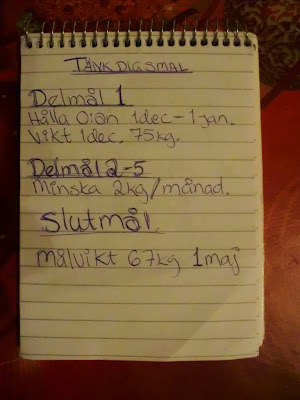 TÄNK DIG SMAL
Delmål 1
Hålla Oian 1dec-1jan.
Vikt 1dec. 75kg.
Delmål 2-5
Minska 2kg/månad.
Slutmål.
målvikt 67kg 1maj